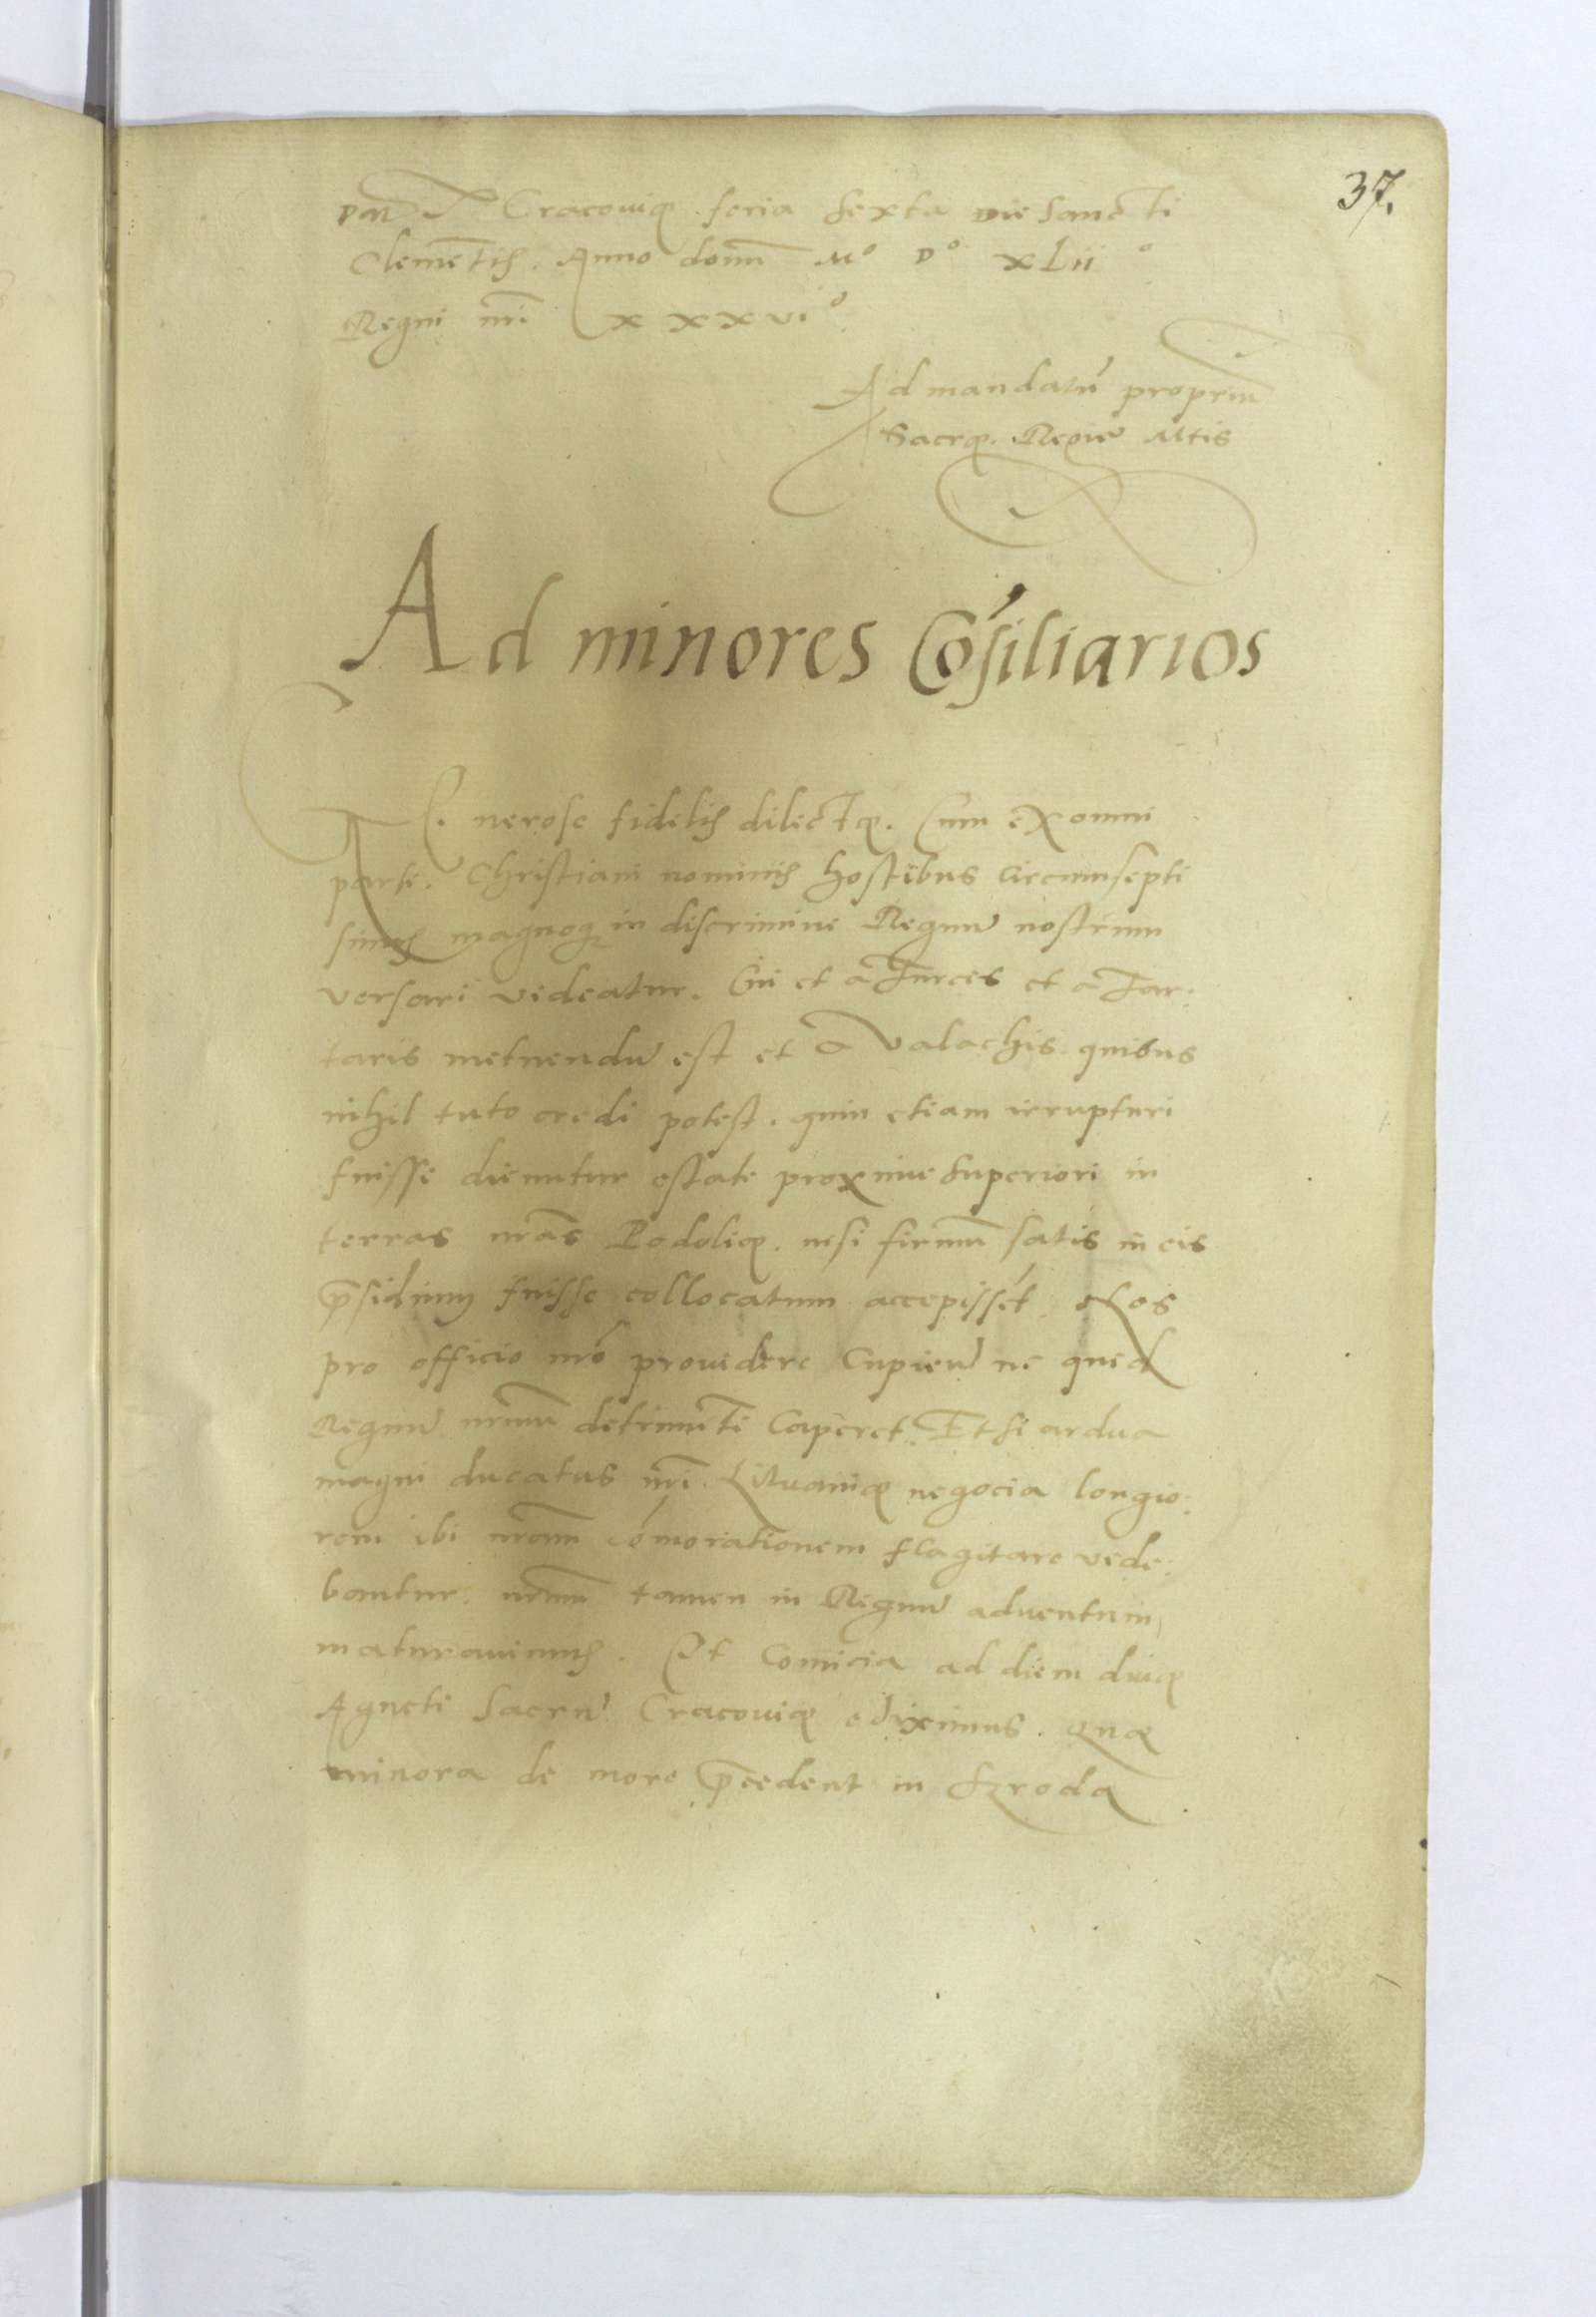 37.
Dat̄ Cracouię feria sexta Die Sancti
Clemẽtis. Anno domī Mº Dº XLii º
Regni nr̄i XXXVIº
Ad mandatū propriū
Sacrę. Regię Mtis
Ad minores Cōsiliarios
Generose fidelis dilectę. Cum ex omni
parte. Christiani nominis hostibus circumsepti
simus magnoq; in discrimine Regnū nostrum
versari videatur. Cū et a Turcis et a Tar:
taris metuendū est et a Valachis. quibus
nihil tuto credi potest. quin etiam irrupturi
fuisse dicuntur estate proxime superiori in
terras nr̄as Podolię. nisi firmū satis in eis
p̄sidium fuisse collocatum accepissēt. Nos
pro officio nr̄o prouidere cupiētes ne quid
Regnū nr̄um detrimēti caperet. Et si ardua
magni ducatus nr̄i. Lituanię negocia longio:
rem ibi nr̄am cōmorationem flagitare vide:
bantur. nr̄um tamen in Regnū aduentum
maturauimus. Et comicia ad diem diuę
Agneti Sacrū Cracouię ediximus. Quę
minora de more p̄cedent in Szroda